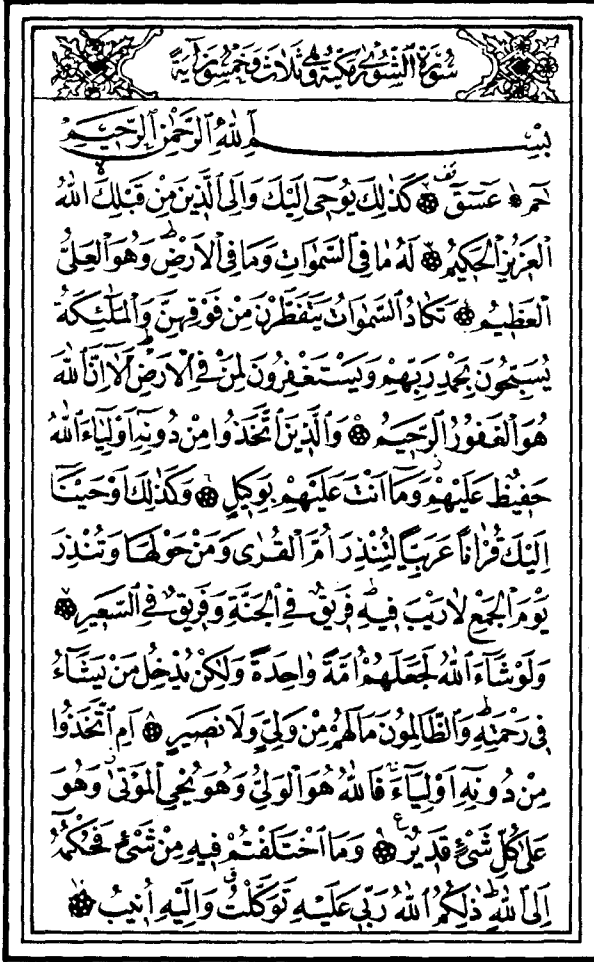 سُورَةُ الشُّورٰى مَكِّيَّةٌ وَهِيَ ثَلَاثٌ وَخَمْسُونَ اٰيَةً
بِسْمِ اللّٰهِ الرَّحْمٰنِ الرَّحِيمِ
حٰمٓ ۝ عٓسٓقٓ ۝ كَذٰلِكَ يُوحٖٓى اِلَيْكَ وَاِلَى الَّذِينَ مِنْ قَبْلِكَ اللّٰهُ
الْعَزِيزُ الْحَكِيمُ ۝ لَهُ مَا فِي السَّمٰوَاتِ وَمَا فِي الْاَرْضِ وَهُوَ الْعَلِيُّ
الْعَظِيمُ ۝ تَكَادُ السَّمٰوَاتُ يَتَفَطَّرْنَ مِنْ فَوْقِهِنَّ وَالْمَلٰٓئِكَةُ
يُسَبِّحُونَ بِحَمْدِ رَبِّهِمْ وَيَسْتَغْفِرُونَ لِمَنْ فِي الْاَرْضِ اَلَٓا اِنَّ اللّٰهَ
هُوَ الْغَفُورُ الرَّحِيمُ ۝ وَالَّذِينَ اتَّخَذُوا مِنْ دُونِهٖٓ اَوْلِيَٓاءَ اللّٰهُ
حَفِيظٌ عَلَيْهِمْ وَمَٓا اَنْتَ عَلَيْهِمْ بِوَكِيلٍ ۝ وَكَذٰلِكَ اَوْحَيْنَٓا
اِلَيْكَ قُرْاٰنًا عَرَبِيًّا لِتُنْذِرَ اُمَّ الْقُرٰى وَمَنْ حَوْلَهَا وَتُنْذِرَ
يَوْمَ الْجَمْعِ لَا رَيْبَ فِيهِ فَرِيقٌ فِي الْجَنَّةِ وَفَرِيقٌ فِي السَّعِيرِ ۝
وَلَوْ شَٓاءَ اللّٰهُ لَجَعَلَهُمْ اُمَّةً وَاحِدَةً وَلٰكِنْ يُدْخِلُ مَنْ يَشَٓاءُ
فِي رَحْمَتِهٖ وَالظَّالِمُونَ مَا لَهُمْ مِنْ وَلِيٍّ وَلَا نَصِيرٍ ۝ اَمِ اتَّخَذُوا
مِنْ دُونِهٖٓ اَوْلِيَٓاءَ فَاللّٰهُ هُوَ الْوَلِيُّ وَهُوَ يُحْيِ الْمَوْتٰى وَهُوَ
عَلٰى كُلِّ شَيْءٍ قَدِيرٌ ۝ وَمَا اخْتَلَفْتُمْ فِيهِ مِنْ شَيْءٍ فَحُكْمُهُٓ
اِلَى اللّٰهِ ذٰلِكُمُ اللّٰهُ رَبِّي عَلَيْهِ تَوَكَّلْتُ وَاِلَيْهِ اُنِيبُ ۝